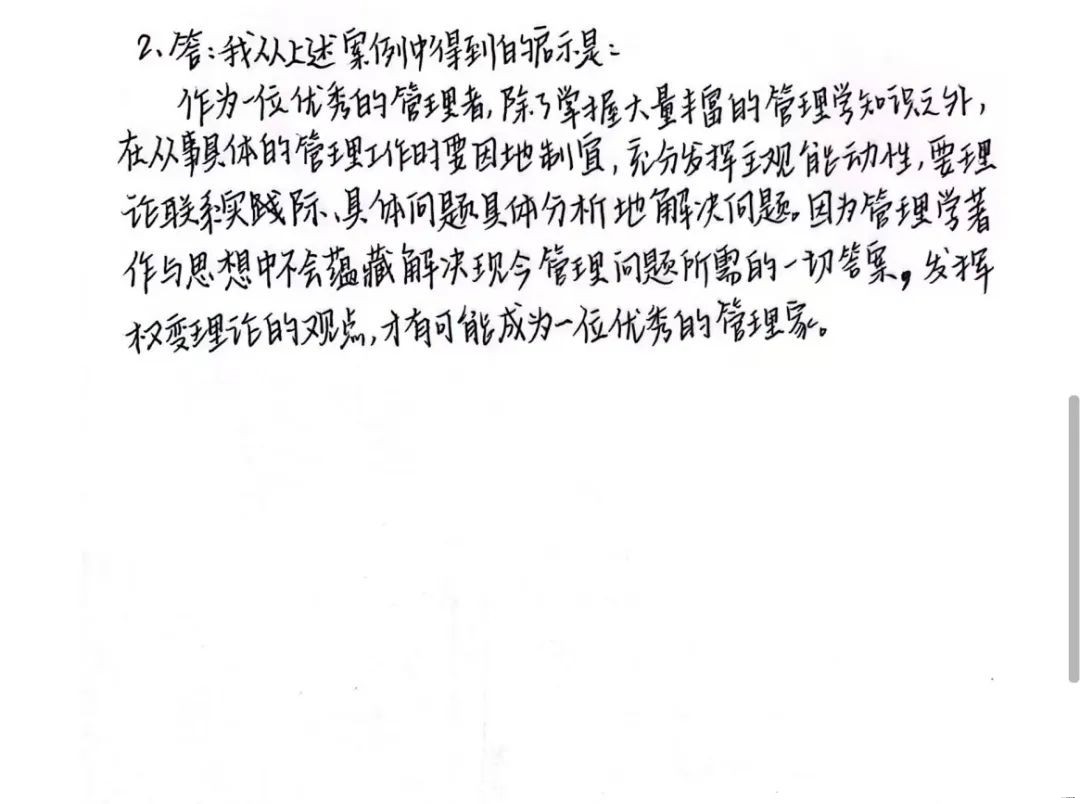 2、答：我从上述案例中得到的启示是：
作为一位优秀的管理者，除了掌握大量丰富的管理学知识之外，
在从事具体的管理工作时要因地制宜，充分发挥主观能动性，要理
论联系实践际、具体问题具体分析地解决问题。因为管理学著
作与思想中不会蕴藏解决现今管理问题所需的一切答案，发挥
权变理论的观点，才有可能成为一位优秀的管理家。